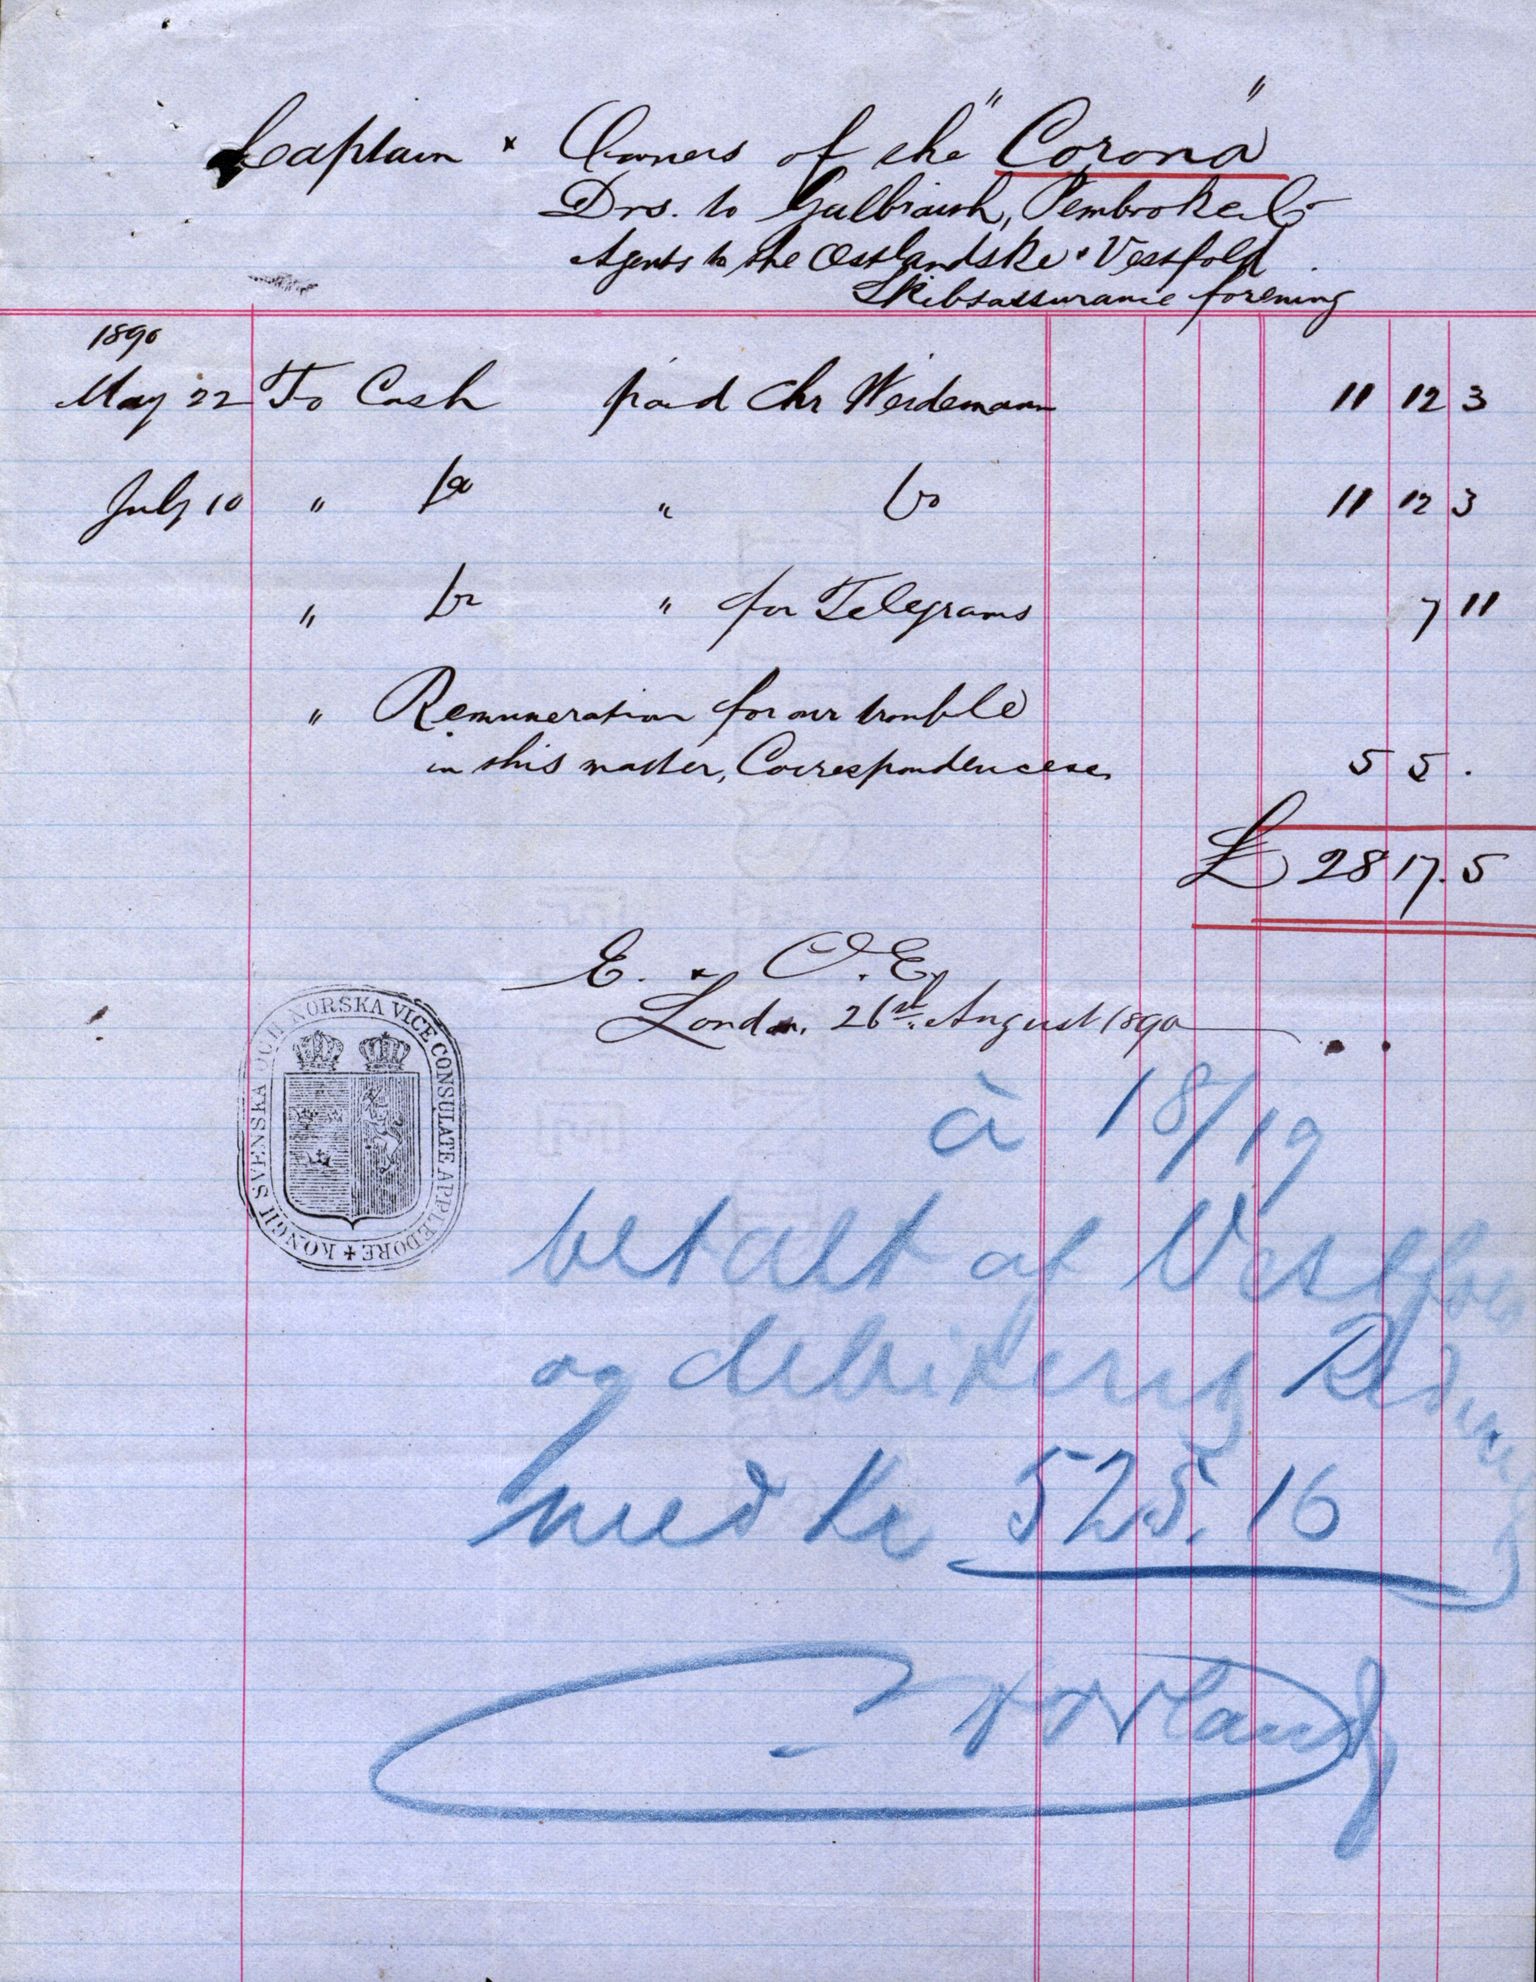 Captain & Owners of the "Corona"
Drs. to Galbraith, Pembroke & Co
Agents to the Ostlandske & Vestfold
Skibsassurance forening
1890
May 22 To Cash paid Chr Weidemann 11 12 3
July 10 " Do " Do 11 12 3
" Do " for Telegrams 7 11
" Remuneration for our trouble
in this matter, Correspondence &c. 5 5 .
£ 28 17. 5
E. & O. E.
London, 26th August 1890
KONGL SVENSKA OCH NORSKA VICE CONSULATE APPLEDORE
à 18/19
betalt af Vestfold
og debiteres
med Kr 525.16